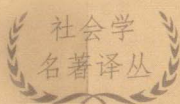 社会学
名著译丛